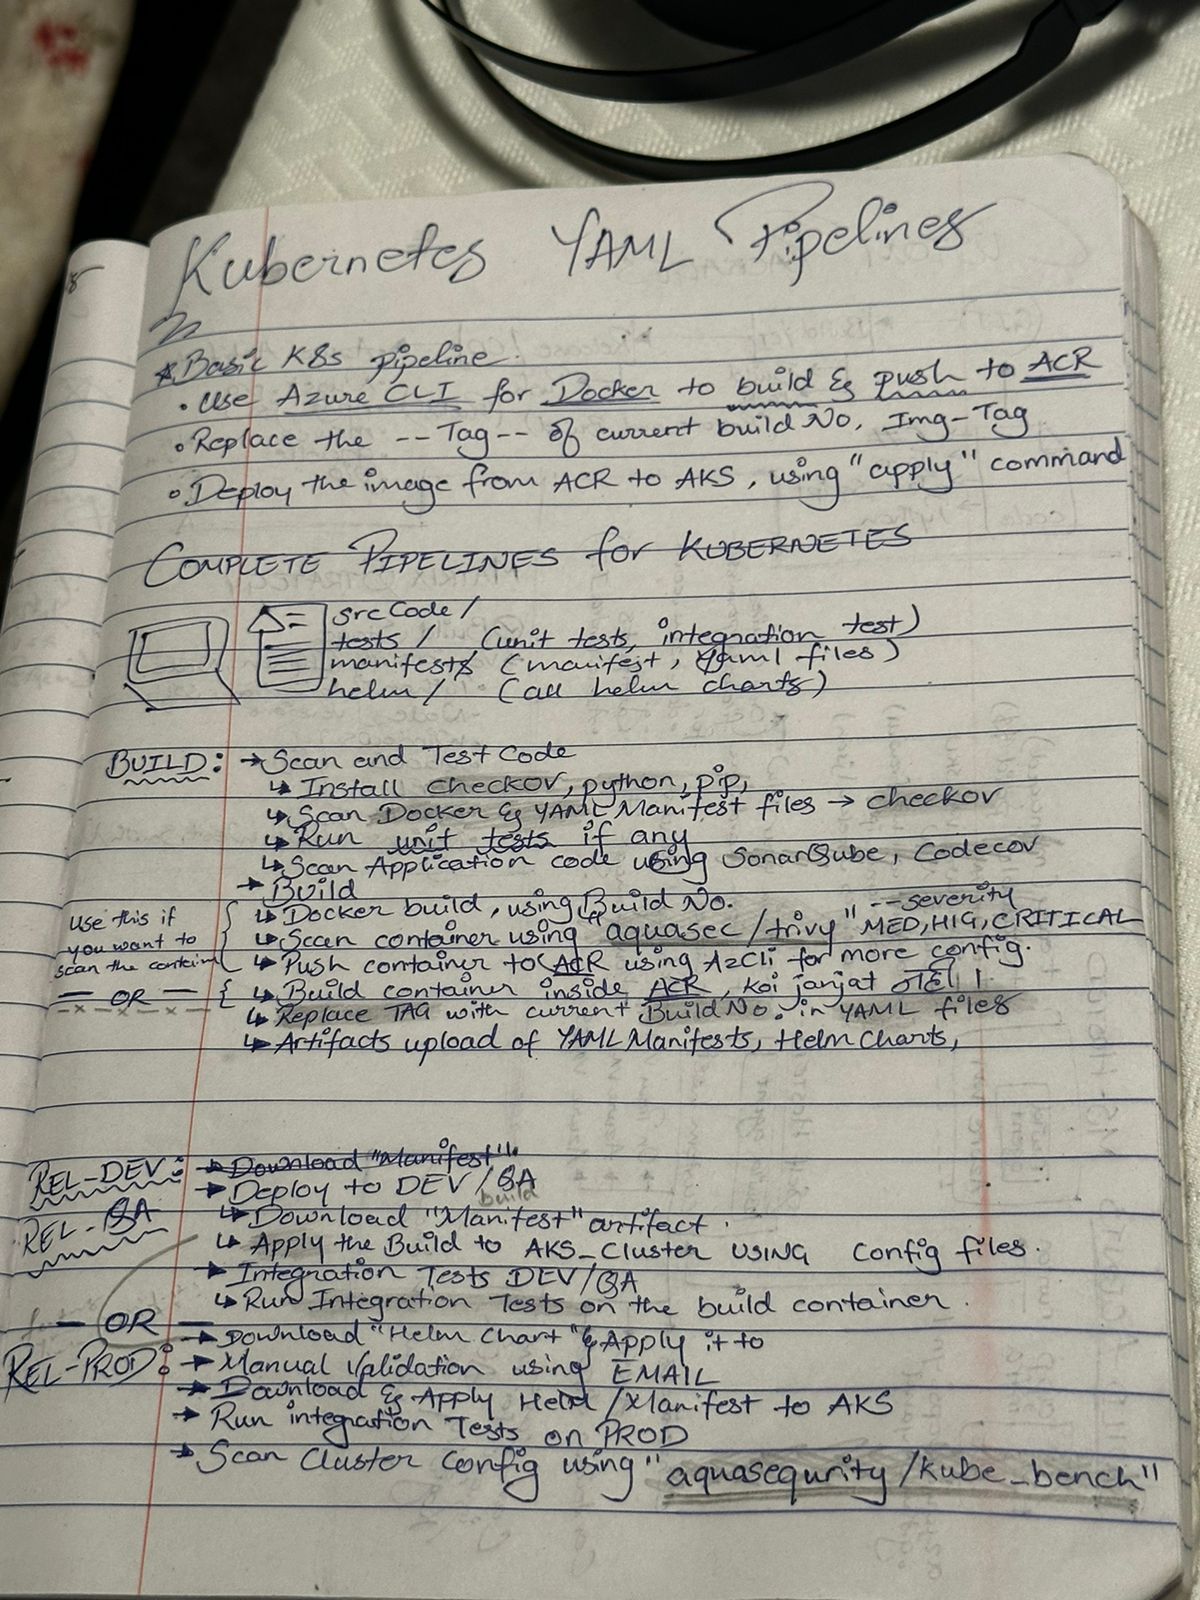 Kubernetes YAML Pipelines
* Basic K8s pipeline
• Use Azure CLI for Docker to build & push to ACR
• Replace the --Tag-- of current build No, Img-Tag
• Deploy the image from ACR to AKS, using "apply" command
COMPLETE PIPELINES for KUBERNETES
src Code/
tests/ (unit tests, integration test)
manifests/ (manifest, Yaml files)
helm/ (all helm charts)
BUILD: → Scan and Test Code
↳ Install checkov, python, pip,
↳ Scan Docker & YAML Manifest files → checkov
↳ Run unit tests if any
↳ Scan Application code using SonarQube, Codecov
→ Build
↳ Docker build, using Build No.
Use this if you want to scan the contain
↳ Scan container using "aquasec/trivy" --severity MED, HIG, CRITICAL
↳ Push container to ACR using AzCli for more config.
— OR —
↳ Build container inside ACR, koi janjat नही।
↳ Replace TAG with current Build No. in YAML files
↳ Artifacts upload of YAML Manifests, Helm Charts,
REL-DEV: → Download "Manifest"
REL-QA
→ Deploy to DEV/QA
↳ Download "Manifest" build artifact.
↳ Apply the Build to AKS_Cluster USING Config files.
→ Integration Tests DEV/QA
↳ Run Integration Tests on the build container.
— OR —
→ Download "Helm Chart" & Apply it to
REL-PROD: → Manual Validation using EMAIL
→ Download & Apply Helm/Manifest to AKS
→ Run integration Tests on PROD
→ Scan Cluster Config using "aquasequrity/kube_bench"